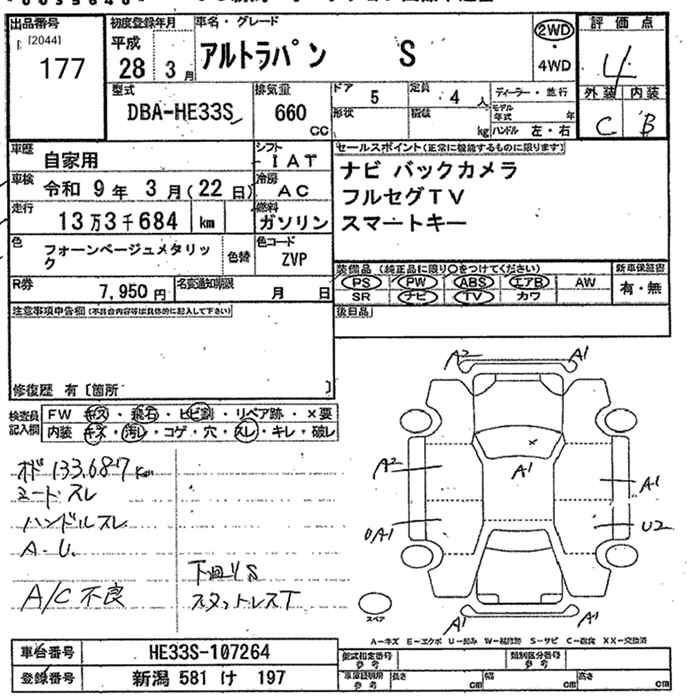 出品番号
[2044]
177
初度登録年月
平成
28 3 月
車名・グレード
アルトラパン S
2WD
・
4WD
評価点
4
外装 内装
C B
型式
DBA-HE33S
排気量
660
CC
ドア
5
定員
4 人
形状
積載
kg
ディーラー・並行
モデル年式 年
ハンドル 左・右
車歴
自家用
シフト
IAT
車検
令和 9 年 3 月 ( 22 日)
冷房
AC
走行
13 万 3 千 684 km
燃料
ガソリン
色
フォーンベージュメタリック
色替
色コード
ZVP
R券
7,950 円
名変通知期限
月 日
セールスポイント(正常に機能するものに限ります)
ナビ バックカメラ
フルセグTV
スマートキー
装備品 (純正品に限り○をつけてください)
新車保証書
PS PW ABS エアB AW
SR ナビ TV カワ
有・無
後日品
注意事項申告欄(不具合内容等は具体的に記入して下さい)
修復歴 有 [箇所 ]
検査員記入欄
FW キズ・飛石・ヒビ割・リペア跡・×要
内装 キズ・汚レ・コゲ・穴・スレ・キレ・破レ
オド 133,687 Km
シート スレ
ハンドルスレ
A・U.
A/C 不良
下回りS
スタットレスT
A2 A1
A1
A2 A1
UA1 U2
A1 A1
スペア
A-キズ E-エクボ U-凹み W-補修跡 S-サビ C-腐食 XX-交換済
車台番号
HE33S-107264
登録番号
新潟 581 け 197
型式指定番号
参考
類別区分番号
参考
車庫証明用
参考
長さ cm
幅 cm
高さ cm